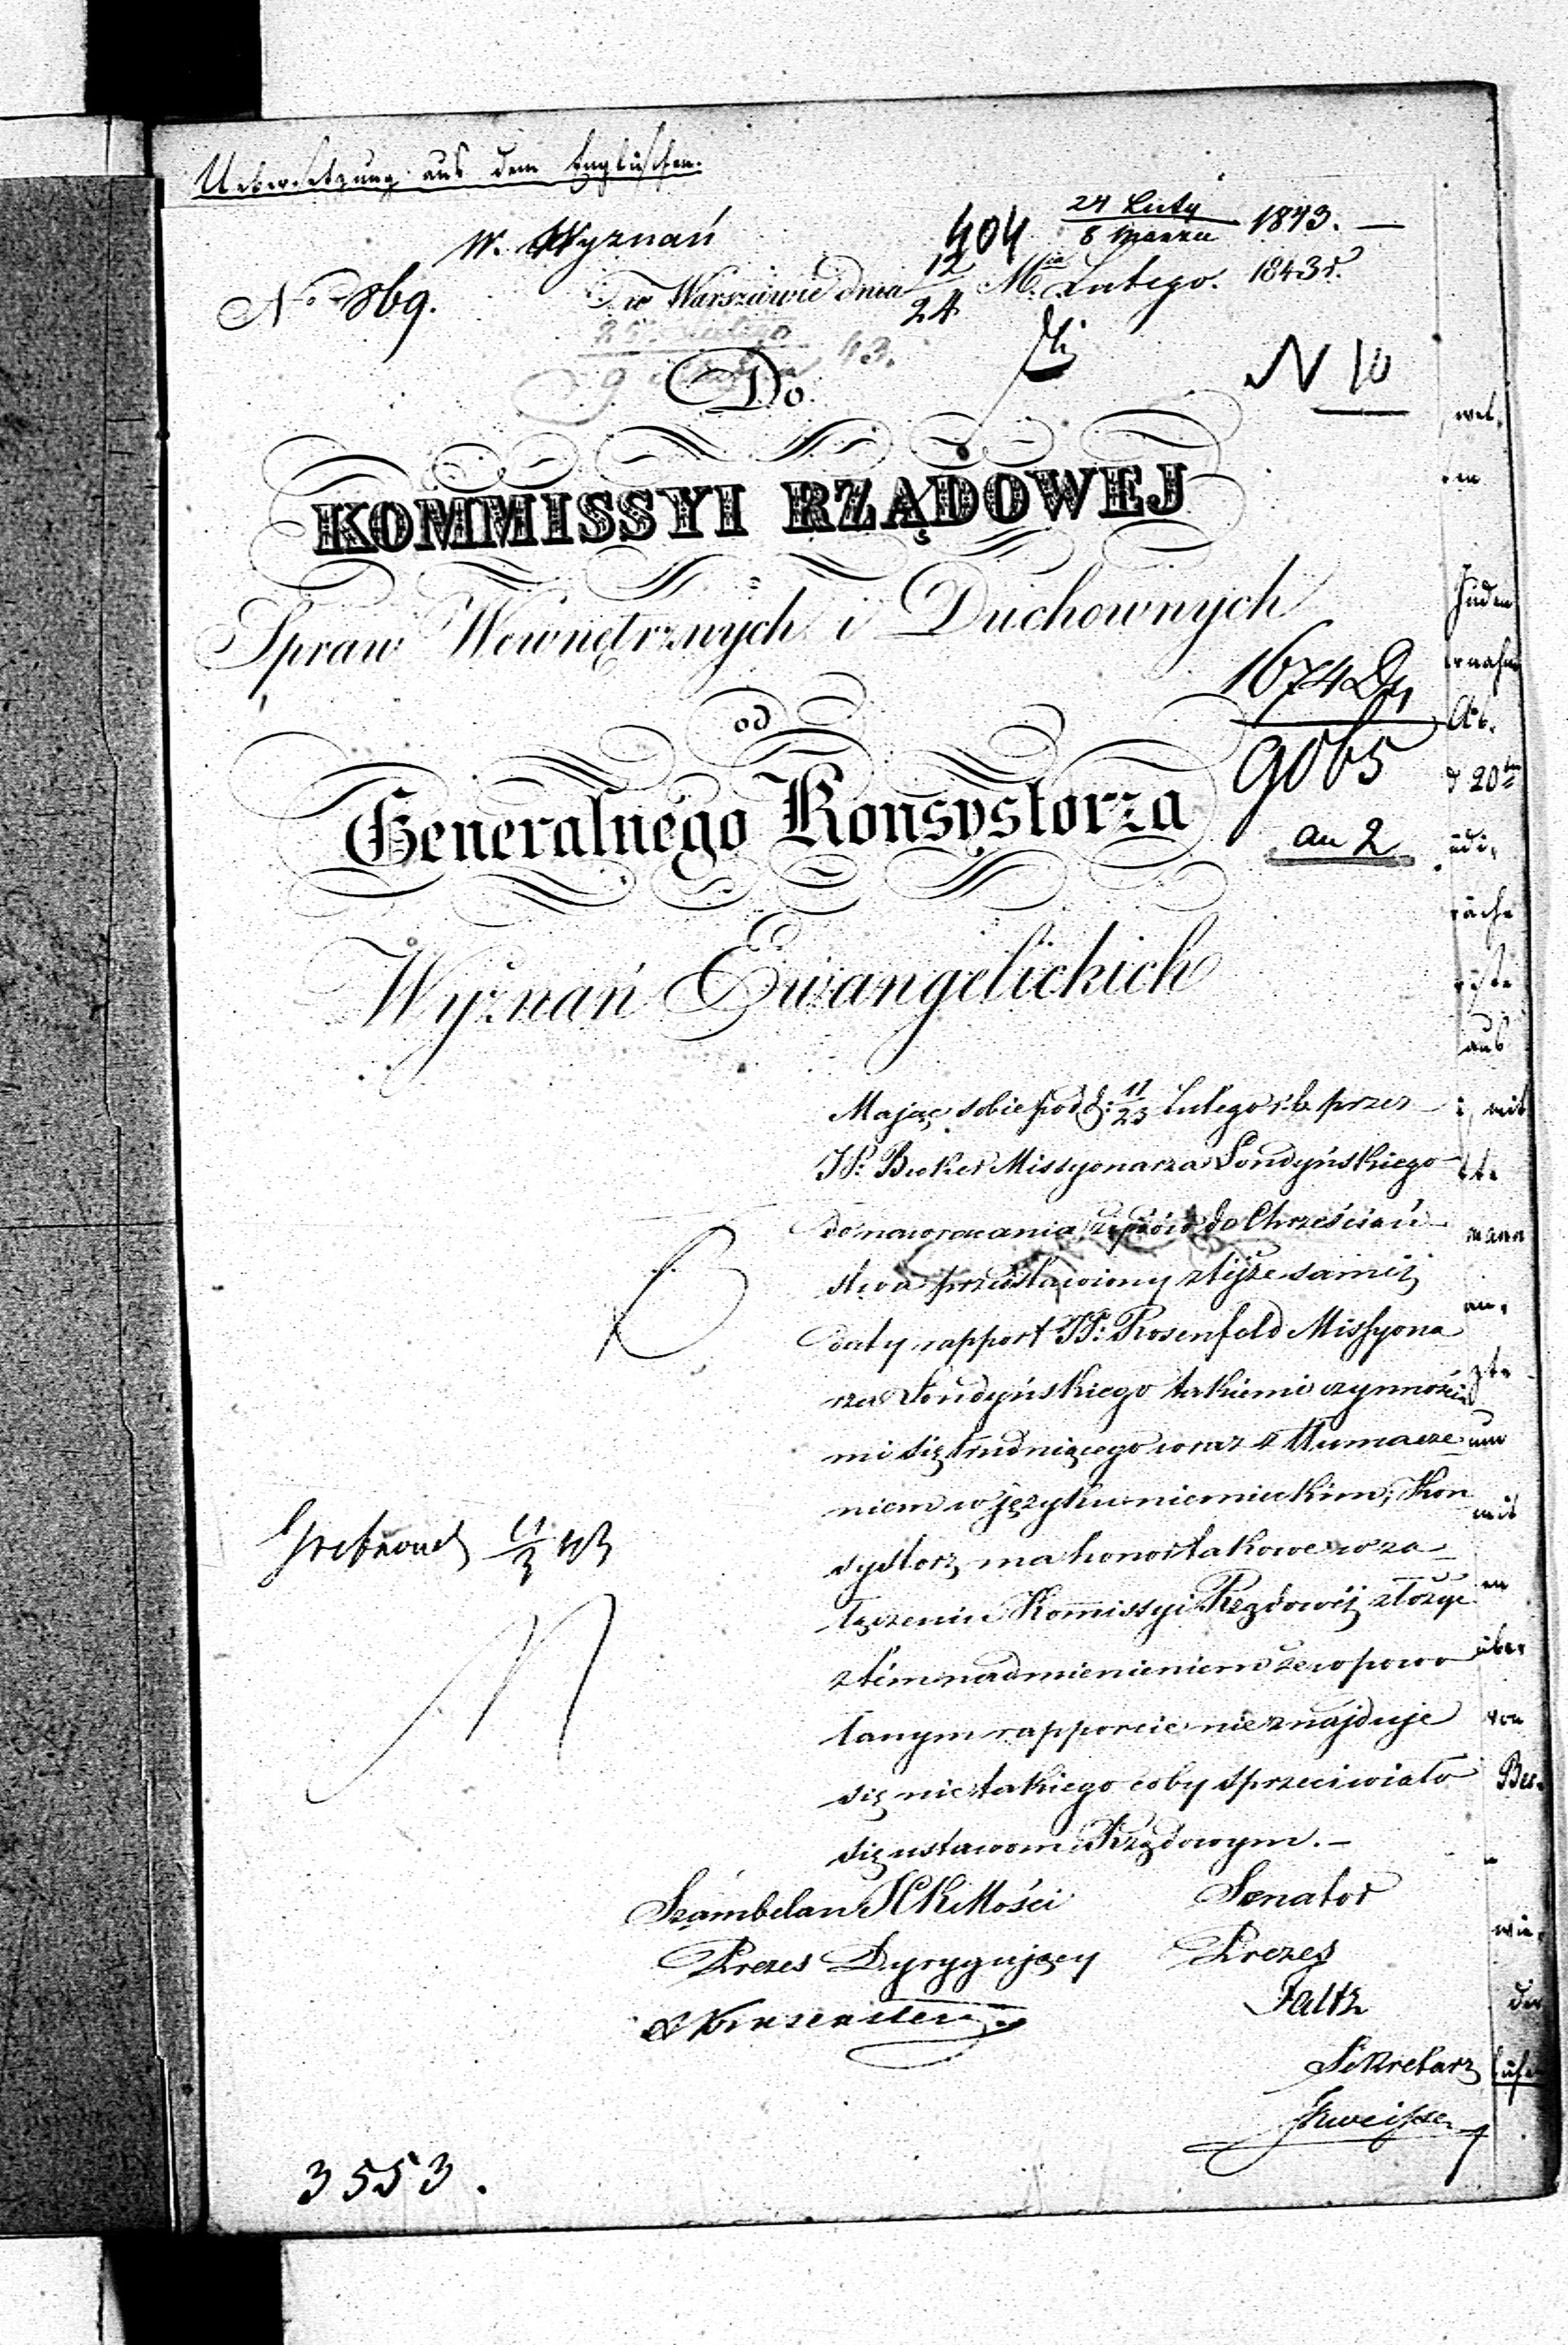 Uebersetzung aus dem Englischen.
W. Wyznań
404 24 Luty / 8 Marca 1843. —
No 869.
w Warszawie dnia 12/24 Mca Lutego. 1843 r.
43.
N 10
Do
KOMMISSYI RZĄDOWEJ
Spraw Wewnętrznych i Duchownych
1674
9065
an 2
od
Generalnego Konsystorza
Wyznań Ewangelickich
Mając sobie pod d: 11/23 Lutego r. b. przez
JP: Becker Missyonarza Londyńskiego
do nawracania żydów do Chrześciań-
stwa przedstawiony z tejże samej
daty rapport JP: Rosenfeld Missyona
rza Londyńskiego takiemi czynnościa
mi się trudniącego wraz z tłumacze
niem w języku niemieckim; Kon
systorz ma honor takowe w za-
łączeniu Kommissyi Rządowej złożyć
z tém nadmienieniem że w powo
łanym rapporcie nie znajduje
się nic takiego coby sprzeciwiało
się ustawom Rządowym. —
Szambelan JKMości
Senator
Prezes Dyrygujący
Prezes
Faltz
Sekretarz
3553.
wel,
en
Juden
Ab.
d 20ten
aus
mit
mann
an,
zte
um
mit
en
über
von
Bes-
wie,
der